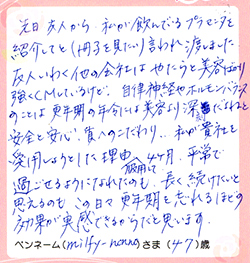 先日 友人から 私が飲んでるプラセンタを
紹介してと(冊子を見たい)言われ渡しました
友人いわく他の会社は やたらと美容ばかり
強くCMしているけど、自律神経やホルモンバランス
のことは更年期の年令には美容より深刻だよねと
安全と安心、質へのこだわり、私が貴社を
愛用しようとした理由 服用して4ヶ月、平常で
過ごせるようになれたのも、長く続けたいと
思えるのも この日々更年期を忘れるほどの
効果が実感できるからだと思います。
ペンネーム(milfy-nonnoさま(47)歳